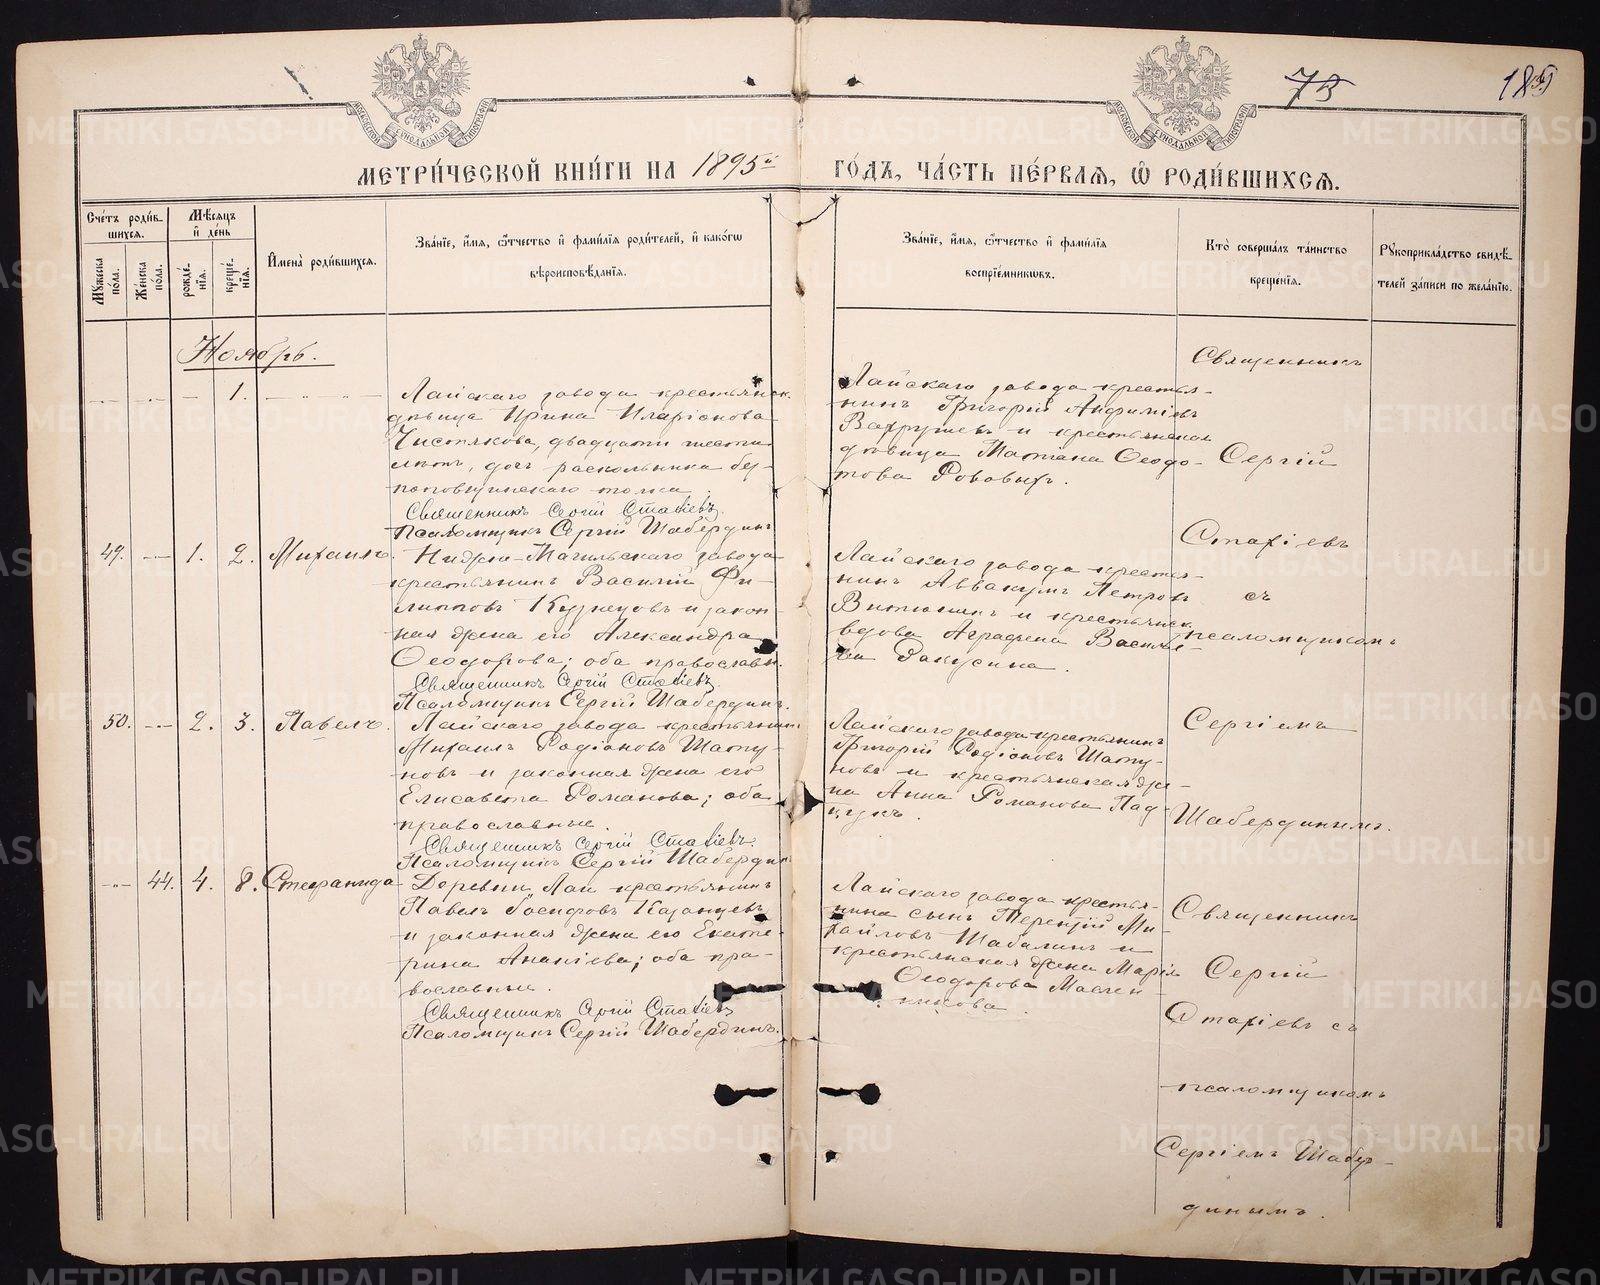 73
185
МЕТРИ́ЧЕСКОЙ КНИ́ГИ НА 1895й ГО́ДЪ, ЧА́СТЬ ПЕ́РВАЯ, Ѽ РОДИ́ВШИХСЯ.
Сче́тъ роди́в-
шихся.
Мꙋжеска по́ла.
Же́нска по́ла.
Мѣ́сяцъ
и҆ де́нь
рожде́-
нїя.
креще́-
нїя.
И҆мена̀ роди́вшихся.
Зва́нїе, и҆́мя, ѻ҆́тчество и҆ фами́лїя роди́телей, и҆ како́гѡ
вѣроисповѣ́данїя.
Зва́нїе, и҆́мя, ѻ҆́тчество и҆ фами́лїя
воспрїе́мникѡвъ.
Кто̀ соверша́лъ та́инство
креще́нїя.
Рꙋкоприкла́дство свидѣ́-
телей за́писи по жела́нїю.
Ноябрь.
1.
Лайскаго завода крестьянск.
дѣвица Ирина Иларіонова
Чистякова, двадцати шести
лѣтъ, дочь раскольника без-
поповщинскаго толка.
Священникъ Сергій Стахіевъ.
Псаломщикъ Сергій Шабердинъ
Лайскаго завода крестья-
нинъ Григорій
Вахрушевъ и крестьянская
дѣвица Татіана Ѳеодо-
това
Священникъ
Сергій
Стахіевъ
съ
псаломщикомъ
Сергіемъ
Шабердинымъ.
49. 1. 2. Михаилъ.
Нижне-Тагильскаго завода
крестьянинъ Василій Фи-
липповъ Кузнецовъ и закон-
ная жена его Александра
Ѳеодорова; оба православн.
Священникъ Сергій Стахіевъ.
Псаломщикъ Сергій Шабердинъ.
Лайскаго завода крестья-
нинъ Аввакумъ Петровъ
и крестьянск.
вдова Аграфена Василье-
ва Ракусина.
50. 2. 3. Павелъ.
Лайскаго завода крестьянинъ
Михаилъ Родіоновъ Шату-
новъ и законная жена его
Елисавета Романова; оба
православные.
Священникъ Сергій Стахіевъ
Псаломщикъ Сергій Шабердин
Лайскаго завода крестьянинъ
Григорій Родіоновъ Шату-
новъ и крестьянская же-
на Анна Романова
44. 4. 8. Стефанида
Деревни Лаи крестьянинъ
Павелъ Іосифовъ Казанцевъ
и законная жена его Екате-
рина Ананіева; оба пра-
вославные.
Священникъ Сергій Стахіевъ
Псаломщикъ Сергій Шабердинъ.
Лайскаго завода крестья-
нина сынъ Терентій Ми-
хайловъ Шабалинъ и
крестьянская жена Марія
Ѳеодорова Маслен-
никова.
Священникъ
Сергій
Стахіевъ съ
псаломщикомъ
Сергіемъ Шабер-
динымъ.
METRIKI.GASO-URAL.RU